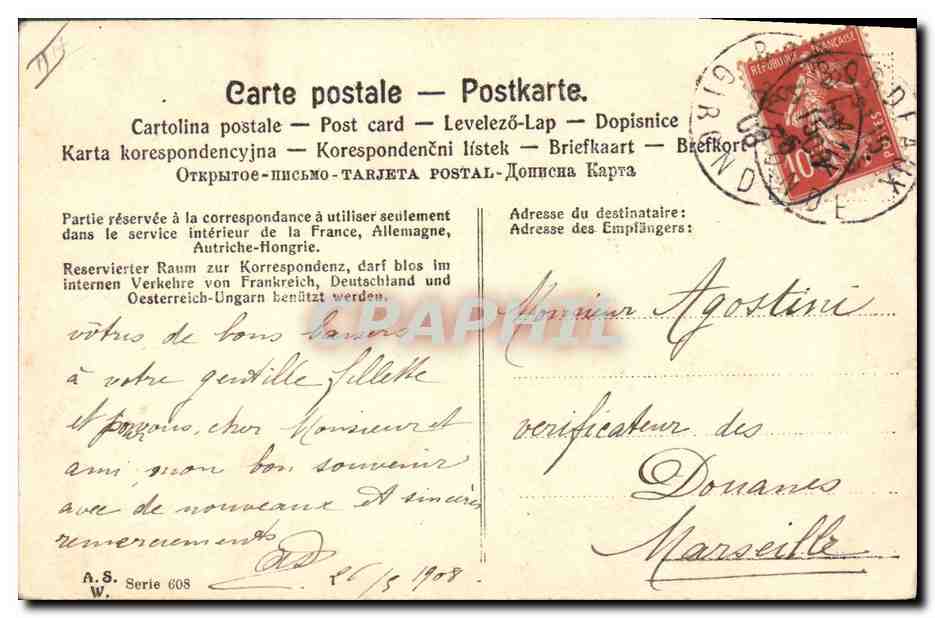 Carte postale — Postkarte.
Cartolina postale — Post card — Levelező-Lap — Dopisnice
Karta korespondencyjna — Korespondenčni lístek — Briefkaart — Brefkort
Открытое-письмо-TARJETA POSTAL-Дописна Карта
Partie réservée à la correspondance à utiliser seulement
dans le service intérieur de la France, Allemagne,
Autriche-Hongrie.
Reservierter Raum zur Korrespondenz, darf blos im
internen Verkehre von Frankreich, Deutschland und
Oesterreich-Ungarn benützt werden.
vôtres de bons baisers
à votre gentille fillette
et pour vous, cher Monsieur et
ami mon bon souvenir
avec de nouveaux et sincères
remerciements
26/5 1908.
A.S.
W. Serie 608
Adresse du destinataire:
Adresse des Empfängers:
Monsieur Agostini
verificateur des
Douanes
Marseille
RÉPUBLIQUE FRANÇAISE
POSTES
10
BORDEAUX
GIRONDE
08
CPAPHIL